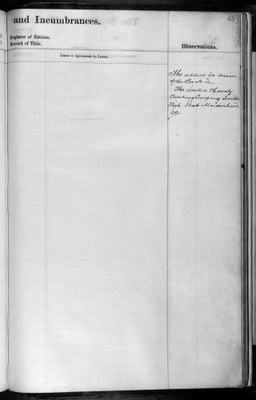 and Incumbrances.
Register of Estates.
Record of Title.
Lease or Agreements for Leases.
Observations.
The address for service
of the Bank is
The London & County
Banking Company Limited
High Street Maidenhead